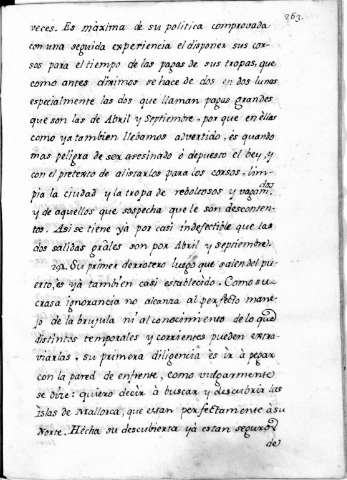 263.
veces. Es máxima de su politica comprovada
con una seguida experiencia el disponer sus cor-
sos para el tiempo de las pagas de sus tropas, que
como antes diximos se hace de dos en dos lunas
especialmente las dos que llaman pagas grandes
que son las de Abril y Septiembre. por que en ellas
como ya tambien llebamos advertido, es quando
mas peligra de ser asesinado ò depuesto el bey, y
con el pretexto de alistarlos para los corsos, lim-
pia la ciudad y la tropa de reboltosos y vagam.
dos
y de aquellos que sospecha que le son desconten-
tos. Asi se tiene ya por casi indefectible que las
dos salidas grâles son por Abril y septiembre.
192. Su primer derrotero luego que salen del pu-
erto, es yà tambien casi establecido. Como su
crasa ignorancia no alcanza al perfecto mane-
jo de la brujula ni al conocimiento de lo que
distintos temporales y corrientes pueden extra-
viarlas, su primera diligencia es ir à pegar
con la pared de enfrente, como vulgarmente
se dize: quiero decir à buscar y descubrir las
Islas de Mallorca, que estan perfectamente à su
Norte. Hecha su descubierta yà estan seguros
de